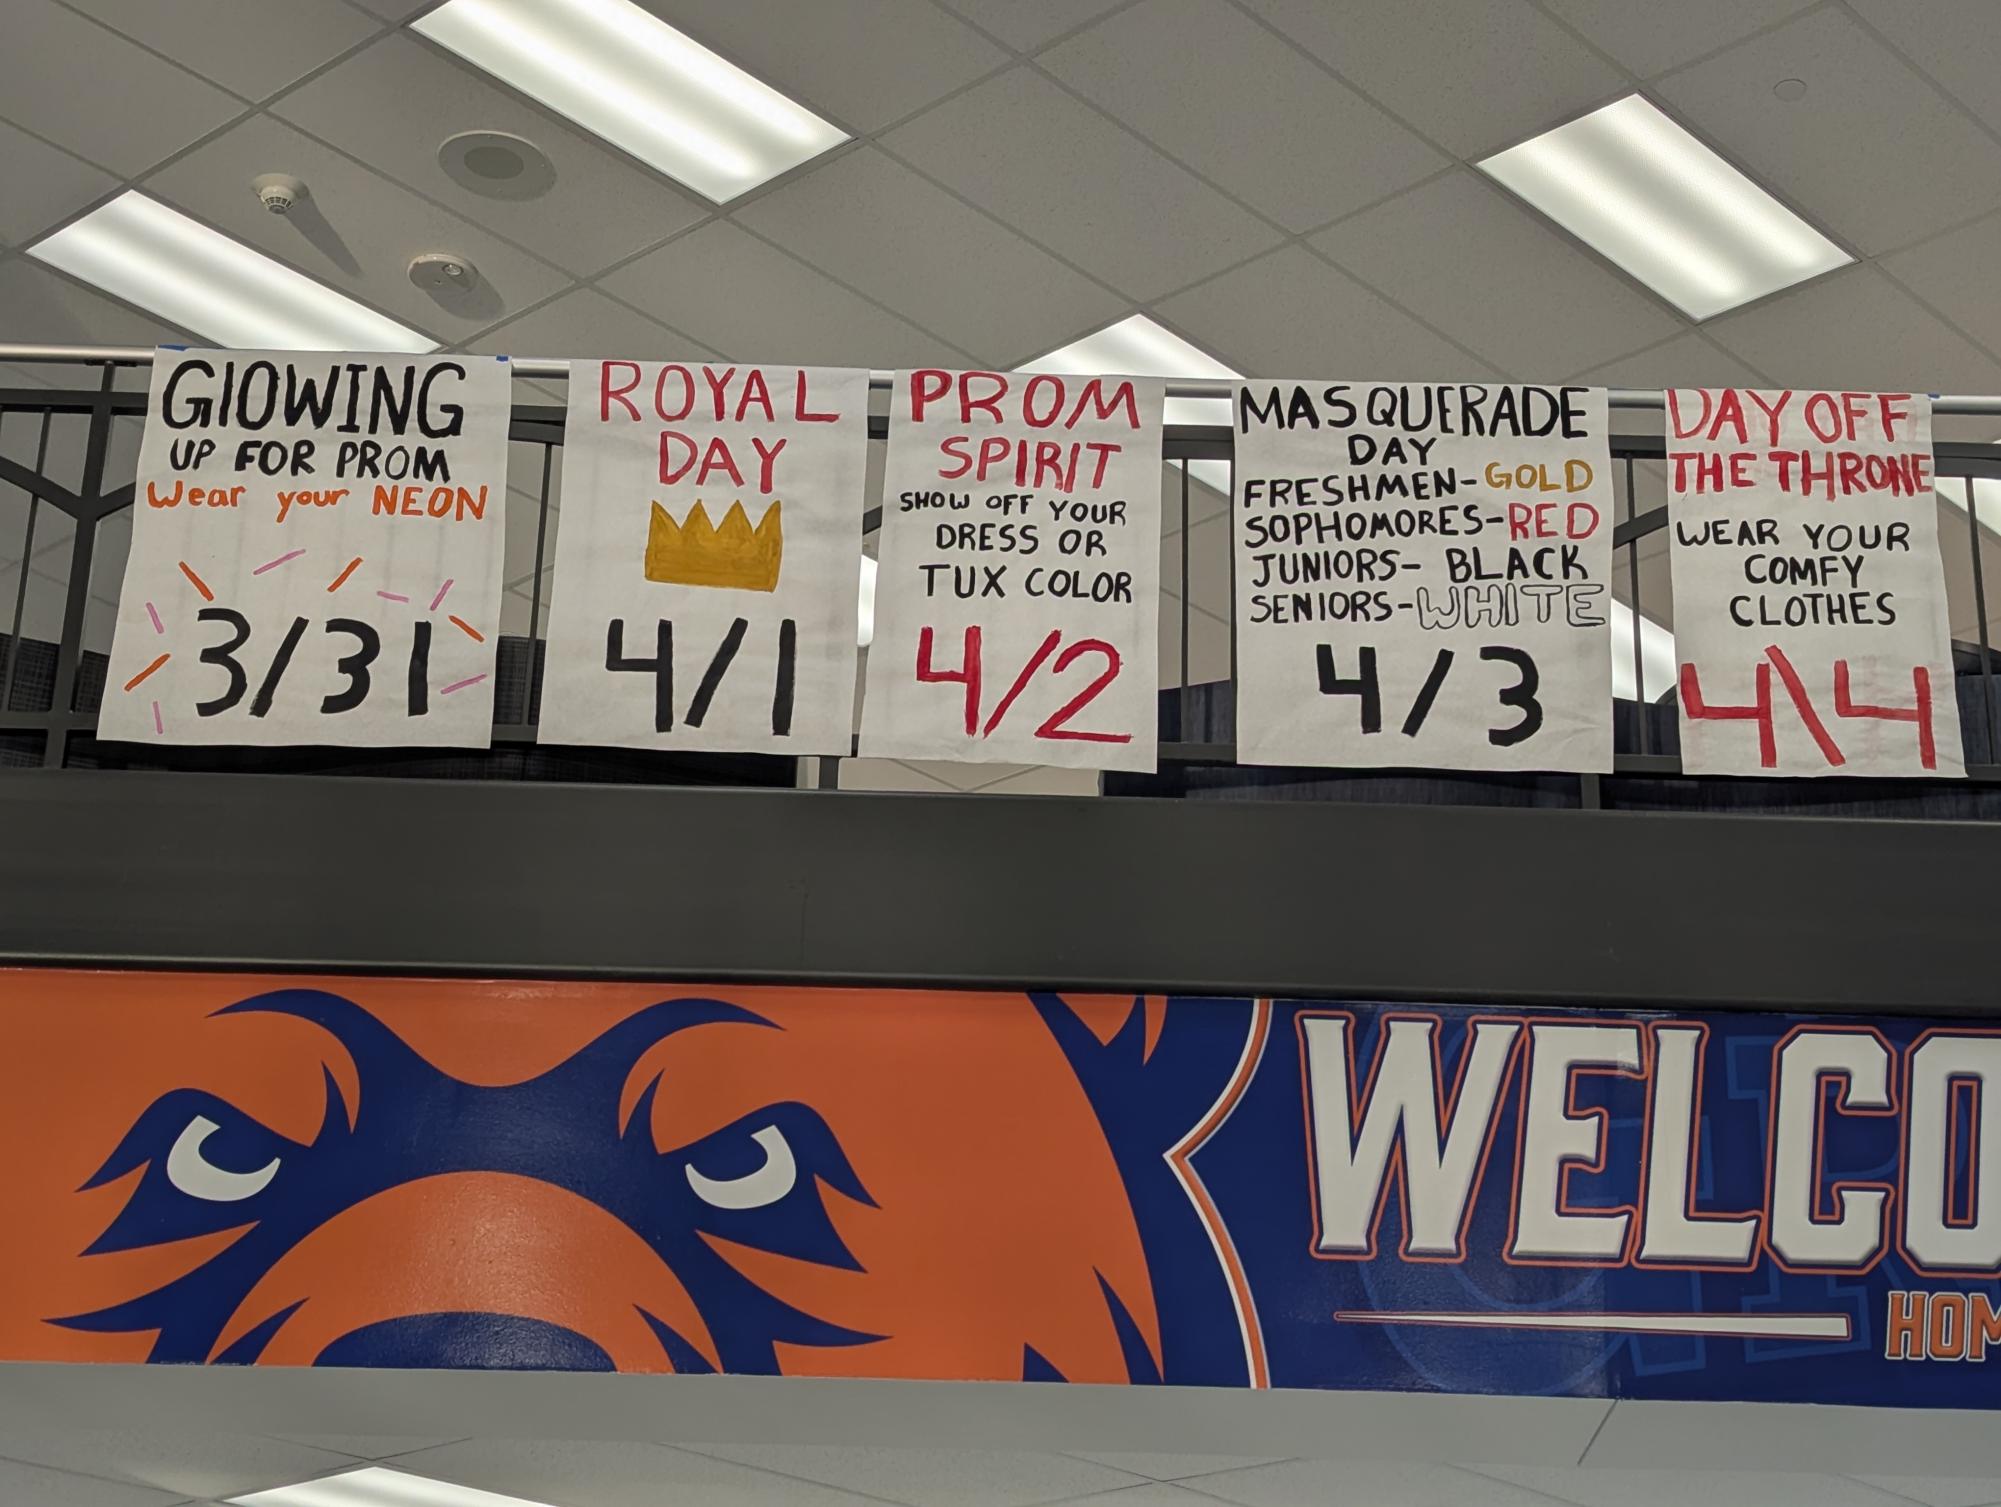 GlOWING
UP FOR PROM
Wear your NEON
3/31
ROYAL
DAY
4/1
PROM
SPIRIT
SHOW OFF YOUR
DRESS OR
TUX COLOR
4/2
MASQUERADE
DAY
FRESHMEN-GOLD
SOPHOMORES-RED
JUNIORS- BLACK
SENIORS-WHITE
4/3
DAY OFF
THE THRONE
WEAR YOUR
COMFY
CLOTHES
4\4
WELCO
HOM